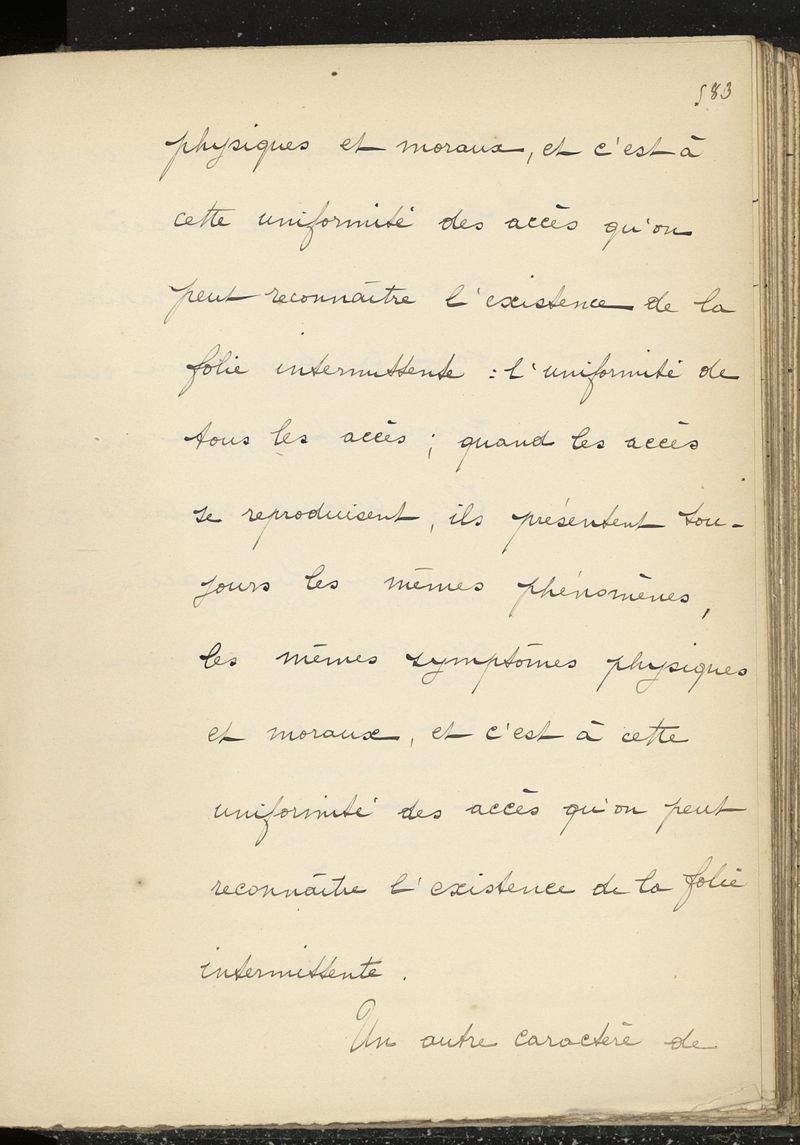 583
physiques et moraux, et c'est à
cette uniformité des accès qu'on
peut reconnaître l'existence de la
folie intermittente : l'uniformité de
tous les accès ; quand les accès
se reproduisent, ils présentent tou-
jours les mêmes phénomènes,
les mêmes symptômes physiques
et moraux, et c'est à cette
uniformité des accès qu'on peut
reconnaître l'existence de la folie
intermittente.
Un autre caractère de